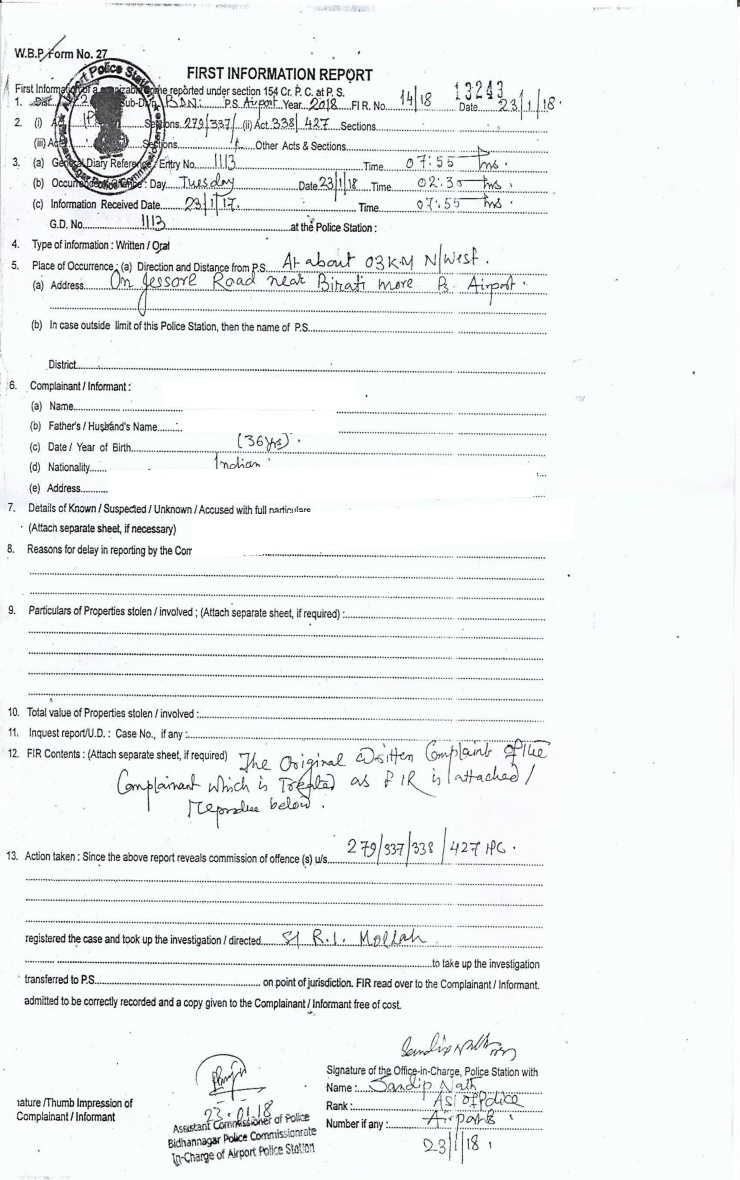 W.B.P. Form No. 27
FIRST INFORMATION REPORT
First Information of a cognizable crime reported under section 154 Cr. P. C. at P. S.
13243
1. Dist. Sub-Dvn. BDN: P.S. Airport Year 2018 FIR. No. 14/18 Date 23/1/18.
2. (i) Act Sections. 279/337/ (ii) Act. 338/427 Sections
(iii) Act Sections Other Acts & Sections
3. (a) General Diary Reference/ Entry No. 1113 Time 07:55 hrs.
(b) Occurrence Day: Tuesday Date 23/1/18 Time 02:30 hrs.
(c) Information Received Date 23/1/17. Time 07:55 hrs.
G.D. No. 1113 at the Police Station :
4. Type of information : Written / Oral
5. Place of Occurrence : (a) Direction and Distance from P.S. At about 03 K.M N/West.
(a) Address On Jessore Road near Birati more PS Airport.
(b) In case outside limit of this Police Station, then the name of P.S.
District
6. Complainant / Informant :
(a) Name
(b) Father's / Husband's Name
(c) Date / Year of Birth (36 yrs).
(d) Nationality Indian
(e) Address
7. Details of Known / Suspected / Unknown / Accused with full particulars
(Attach separate sheet, if necessary)
8. Reasons for delay in reporting by the Com
9. Particulars of Properties stolen / involved ; (Attach separate sheet, if required) :
10. Total value of Properties stolen / involved :
11. Inquest report/U.D. : Case No., if any :
12. FIR Contents : (Attach separate sheet, if required) The Original Written Complaint of the
Complainant which is Treated as FIR is attached /
below.
13. Action taken : Since the above report reveals commission of offence (s) u/s. 279/337/338/427 IPC.
registered the case and took up the investigation / directed SI R.I. Mollah
to take up the investigation
transferred to P.S. on point of jurisdiction. FIR read over to the Complainant / Informant.
admitted to be correctly recorded and a copy given to the Complainant / Informant free of cost.
Signature of the Office-in-Charge, Police Station with
Name : Sandip Nath
Rank : ASI of Police
Number if any : Airport PS
23/1/18.
nature /Thumb Impression of
Complainant / Informant
23.01.18
Assistant Commissioner of Police
Bidhannagar Police Commissionrate
In-Charge of Airport Police Station